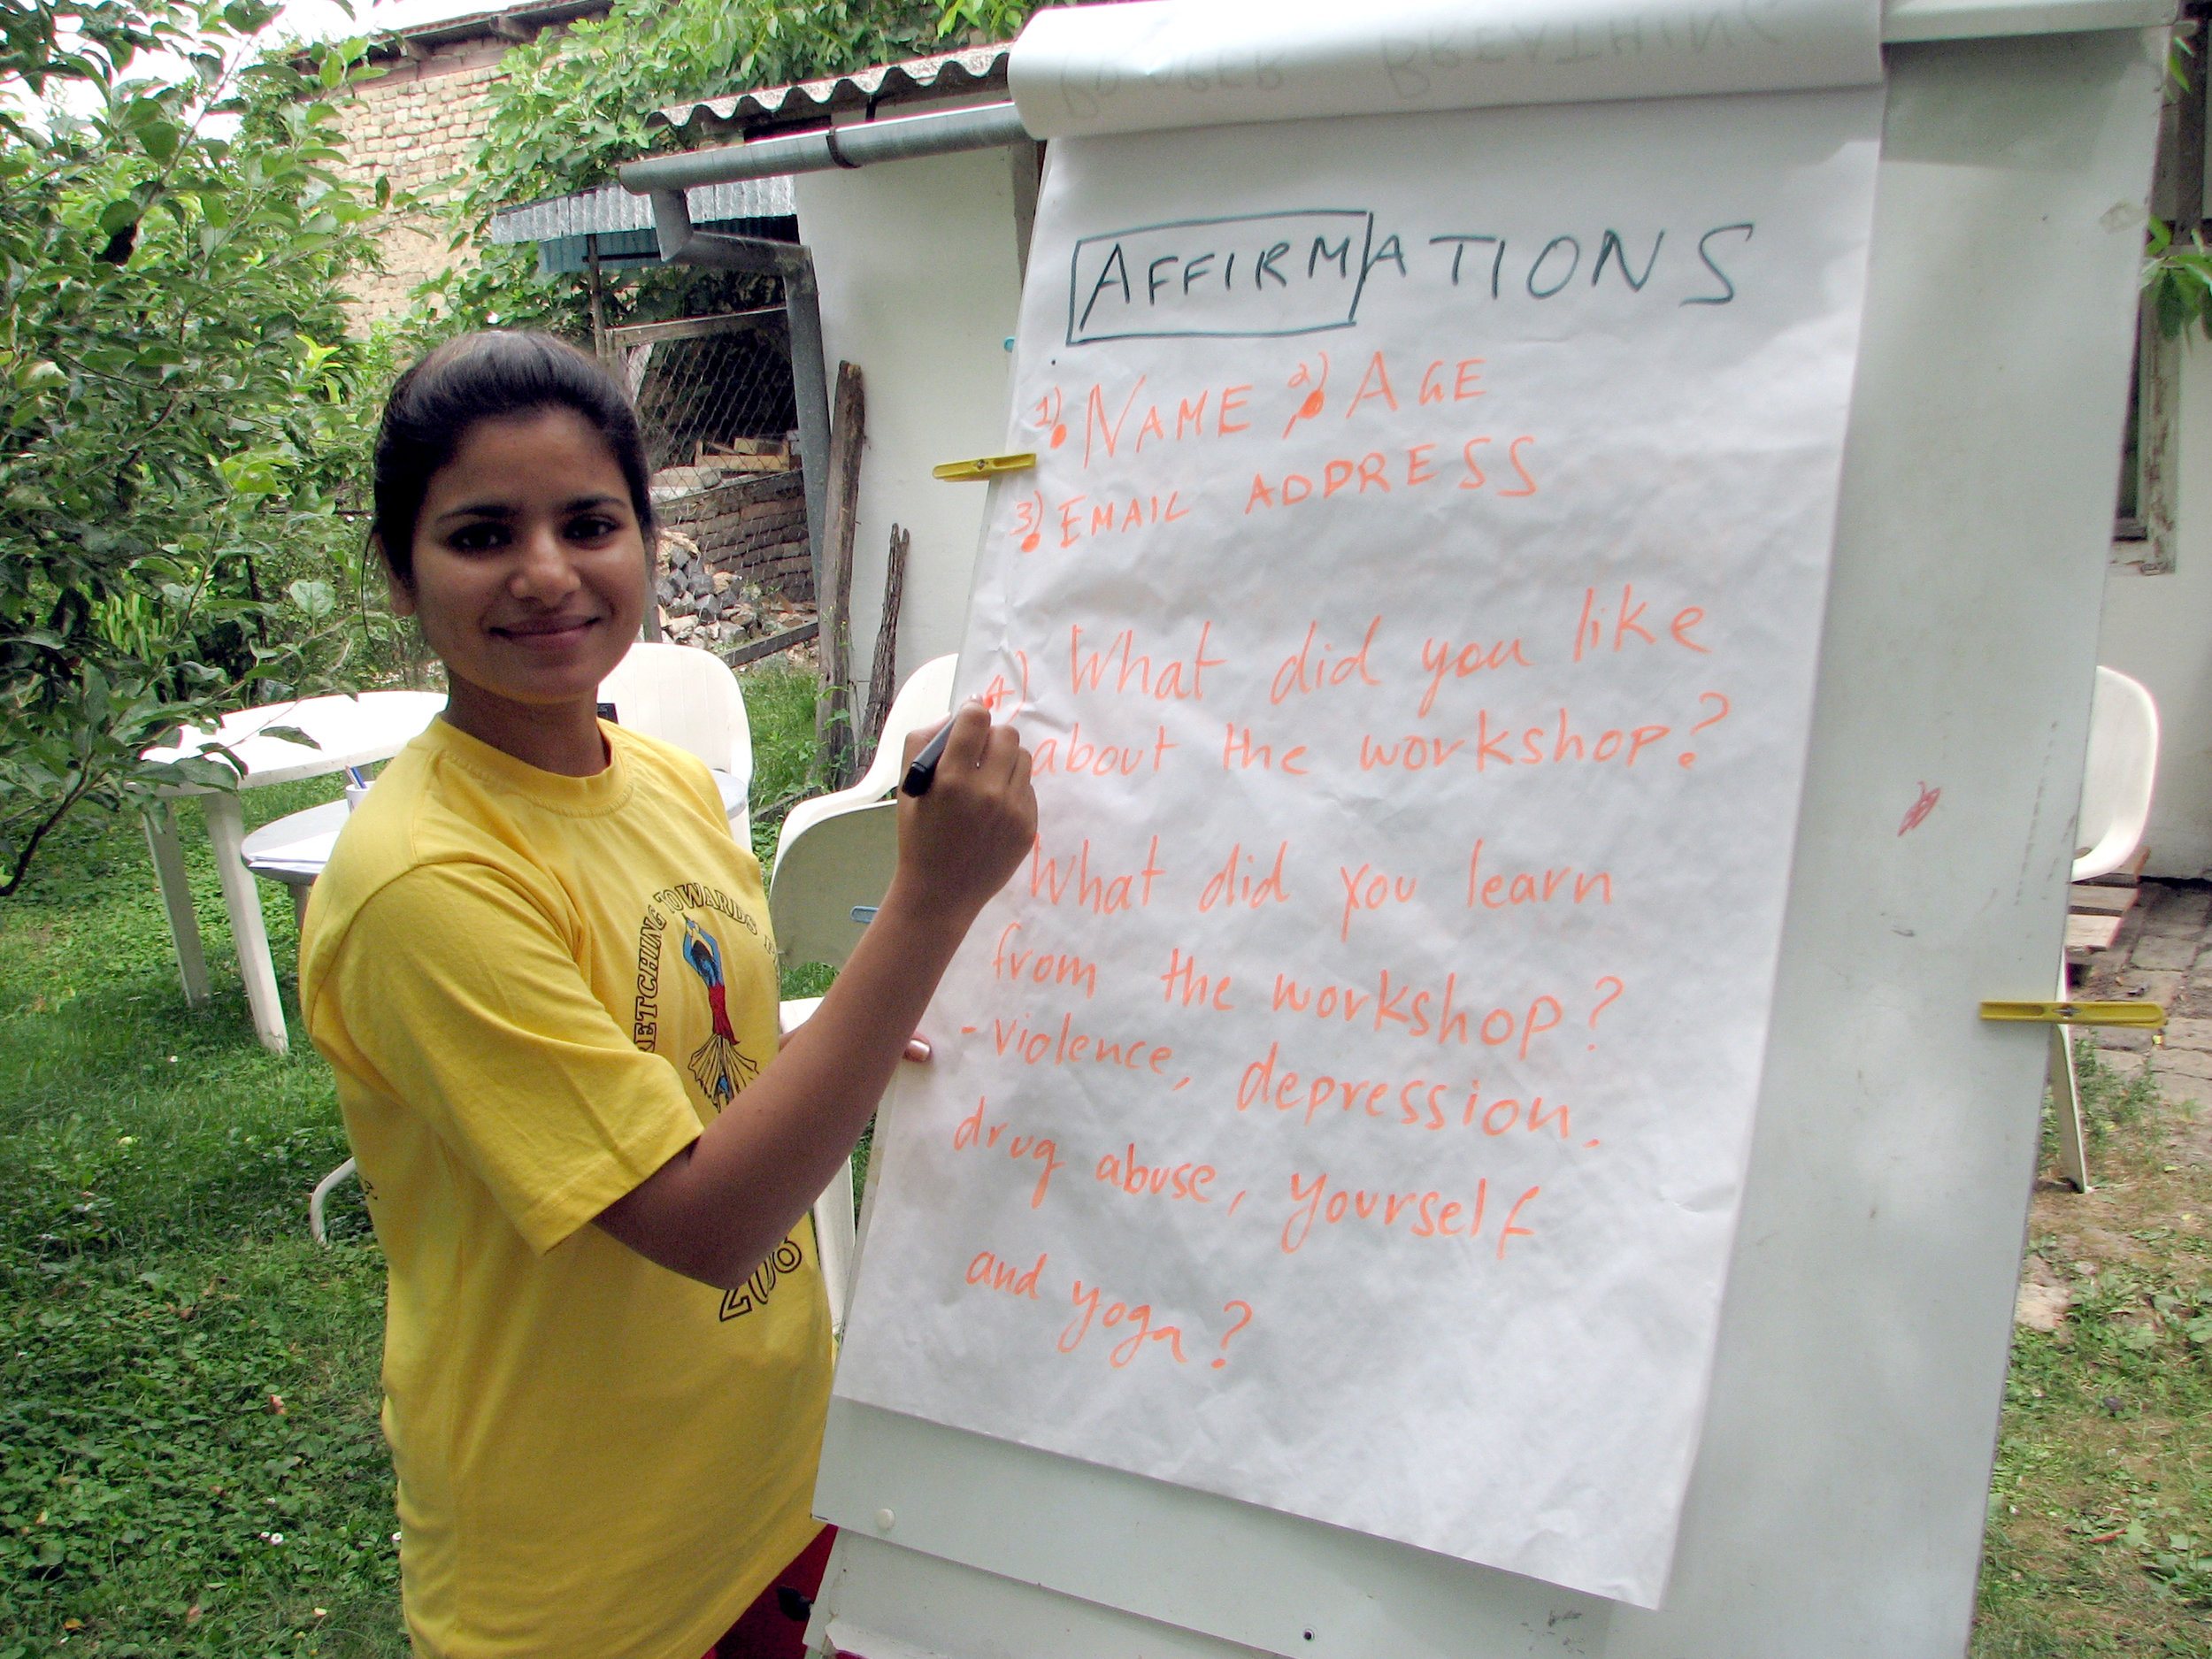 BREATHING
AFFIRMATIONS
1) NAME 2) AGE
3) EMAIL ADDRESS
4) What did you like
about the workshop?
What did you learn
from the workshop?
- violence, depression.
drug abuse, yourself
and yoga?
RETCHING TOWARDS
2008